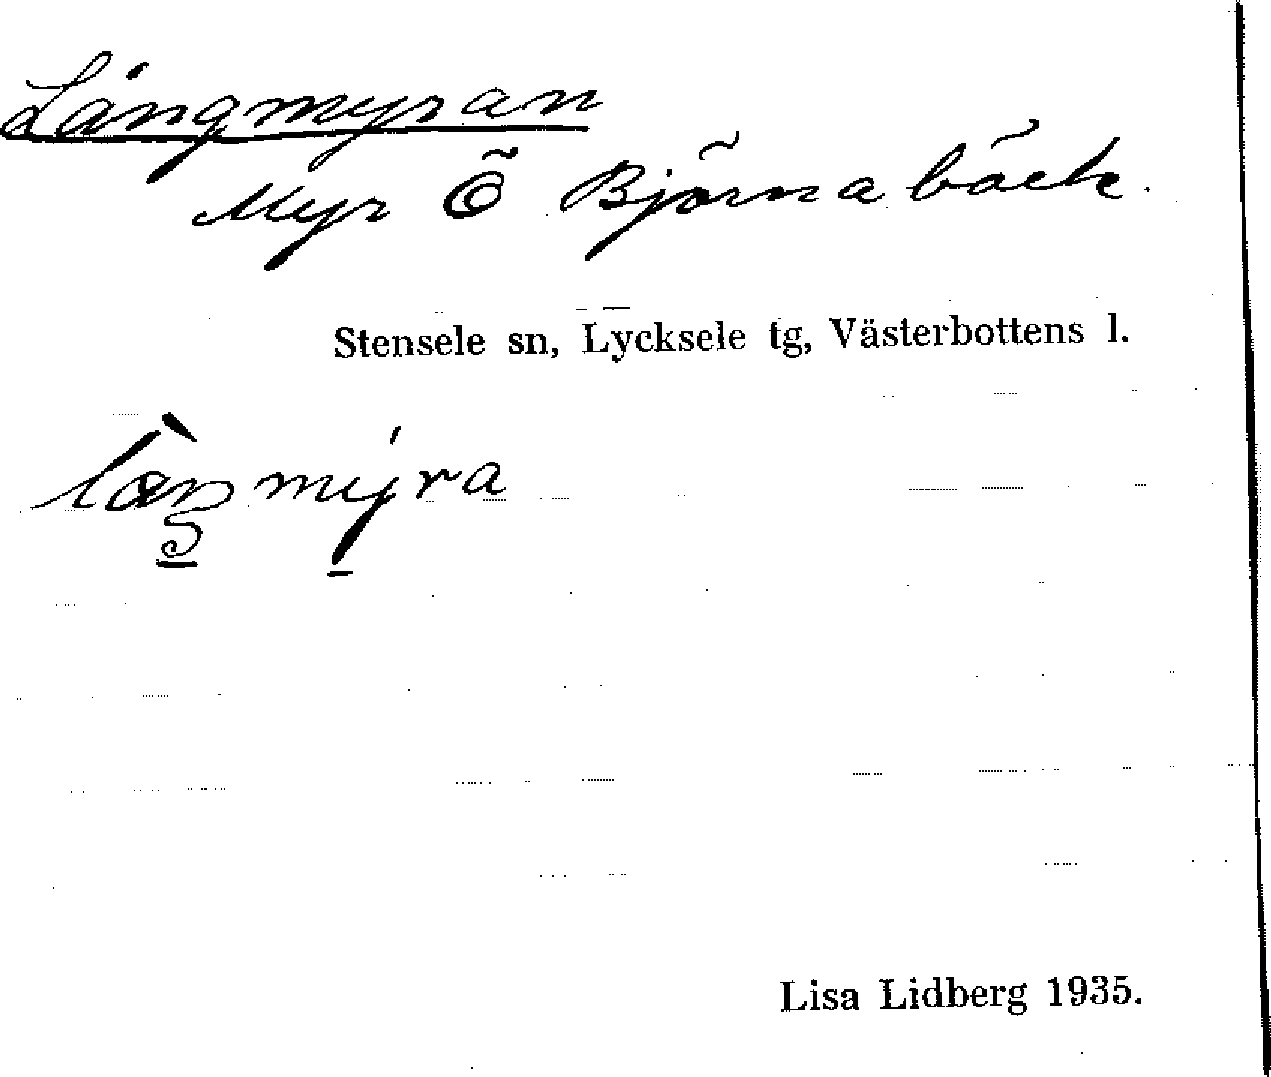 Långmyran
Myr Ö Björnabäck.
Stensele sn, Lycksele tg, Västerbottens l.
Lisa Lidberg 1935.